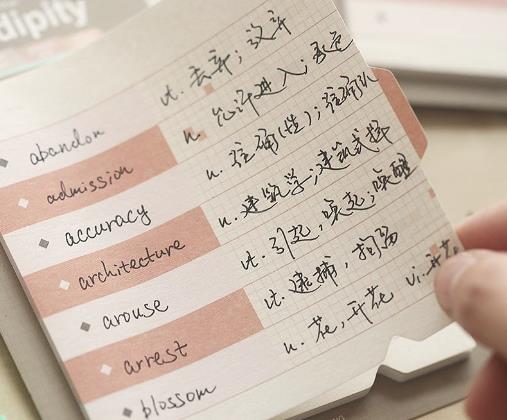 dipity
abandon vt. 丢弃；放弃
admission n. 允许进入；
accuracy n. 准确(性)；准确
architecture n. 建筑学；建筑式样
arouse vt. 引起，唤起；唤醒
arrest vt. 逮捕，扣留
blossom n. 花，开花 vi. 开花